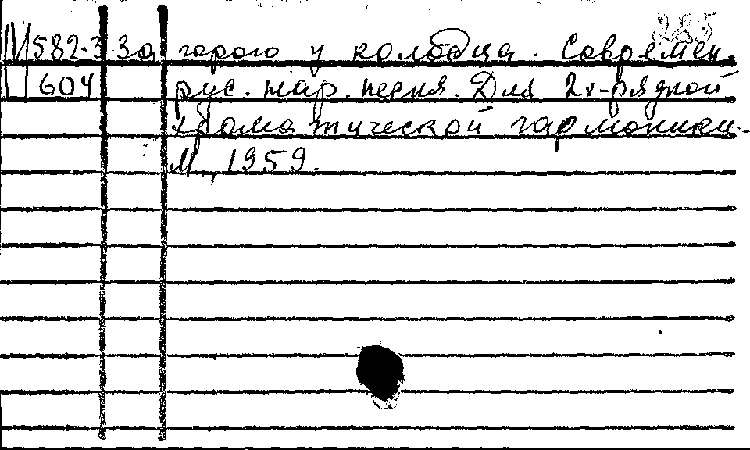 285
М582-3 За горою у колодца. Современ.
604 рус. нар. песня. Для 2х-рядной
хроматической гармоники.-
М., 1959.